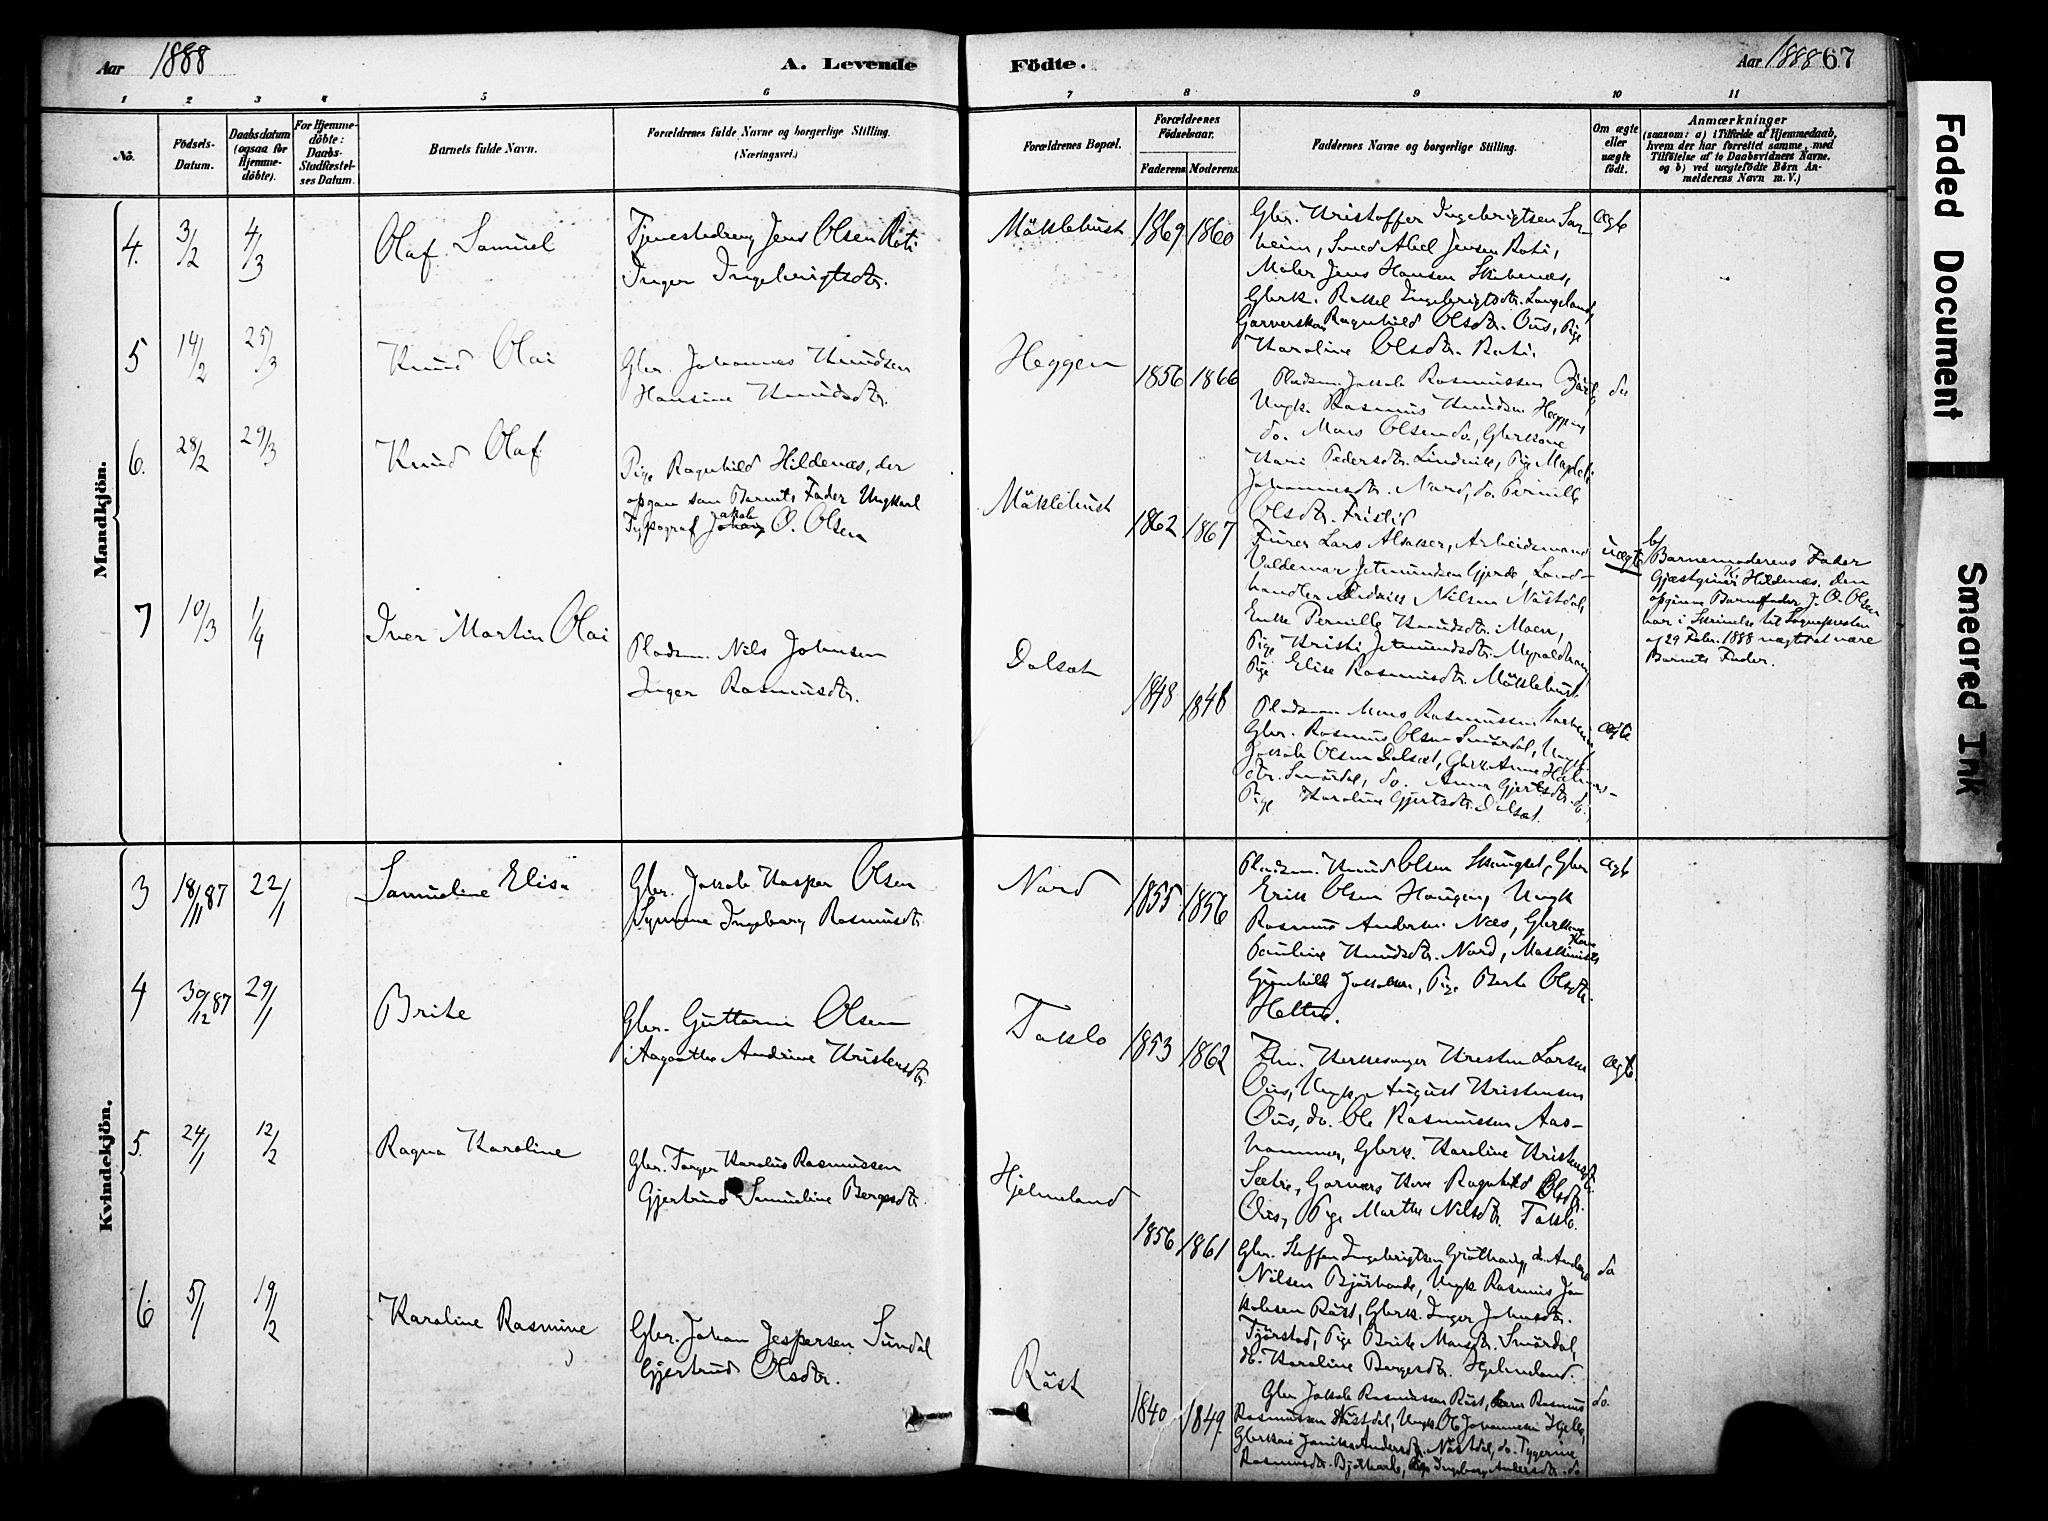 Aar 1888
A. Levende
Födte.
Aar 1888 67
1 2 3 4 5 6 7 8 9 10 11
No.
Födsels-
Datum.
Daabsdatum
(ogsaa for
Hjemme-
döbte).
For Hjemme-
döbte:
Daabs-
Stadfæstel-
ses Datum.
Barnets fulde Navn.
Forældrenes fulde Navne og borgerlige Stilling.
(Næringsvei.)
Forældrenes Bopæl.
Forældrenes
Födselsaar.
Faderens Moderens
Faddernes Navne og borgerlige Stilling.
Om ægte
eller
uægte
födt.
Anmærkninger
(saasom: a) i Tilfælde af Hjemmedaab,
hvem der har forrettet samme, med
Tilföielse af to Daabsvidners Navne.
og b) ved uægtefödte Börn An-
melderens Navn m. V.)
Mandkjön.
4. 3/2 4/3
Olaf Samuel
Tjenestedreng Jens Olsen Roti
Inger Ingebrigtsdtr.
Mäklebust
1869 1860
Gbr. Kristoffer Ingebrigtsen
heim, Smed Abel Jensen Roti,
Maler Jens Hansen
Gbrk. Rakel Ingebrigtsdtr. Langeland,
Garverskon Ragnhild Olsdtr. Ous, Pige
Karoline Olsdtr. Roti.
ægte
5 14/2 25/3
Knud Olai
Gbr. Johannes Knudsen
Hansine Knudsdtr.
Heggen
1856 1866
Pladsm. Jakob Rasmussen
Ungk. Rasmus Knudsen Heggen,
do. Mons Olsen do., Gbrkone
Kari Pedersdtr. Lindvik, Pige
Johannesdtr. Nord, do. Pernille
Olsdtr.
do
6. 28/2 29/3
Knud Olaf
Pige Ragnhild Hildenæs, der
opgav som Barnets Fader Ungkarl
Typograf Jakob O. Olsen
Mäklebust
1862 1867
Furer Lars Alsaker, Arbeidsmand
Valdemar Jetmundsen Gjerde, Land-
handler Nilsen Nästdal,
Enke Pernille Knudsdtr. Moen,
Pige Kristi Jetmundsdtr.
Pige Elise Rasmusdtr. Mäklebust
uægte
b/
Barnemoderens Fader
Gjæstgiver K. Hildenæs. Den
opgivne Barnefader J. O. Olsen
har i Skrivelse til Sognepresten
af 29 Febr. 1888 nægtet at være
Barnets Fader.
7 10/3 1/4
Iver Martin Olai
Pladsm. Nils Johansen
Inger Rasmusdtr.
Dalsæt
1848 1848
Pladsman Mons Rasmussen
Gbr. Rasmus Olsen Smördal, Ungk.
Jakob Olsen Dalsæt, Gbrk. Anne
dtr. Smördal, do. Anna Gjertsdtr. do.
Pige Karoline Gjertsdtr. Dalsæt.
ægte
Kvindekjön.
3 18/11 87 22/1
Samueline Elisa
Gbr. Jakob Kasper Olsen
Synneve Ingeborg Rasmusdtr.
Nord
1855 1856
Pladsm. Knud Olsen Gbr
Erik Olsen Haugen, Ungk
Rasmus Andersen Næs, Gbrkone
Pauline Knudsdtr. Nord, Maskinist
Kone
Gunhild Jakobsen, Pige Berte Olsdtr.
ægte
4 30/12 87 29/1
Brite
Gbr. Guttorm Olsen
Aagaathe Andrine Kristensdtr.
Taklo
1853 1862
Kirkesanger Kristen Larsen
Ous, Ungk August Kristensen
Ous, do. Ole Rasmussen Aas-
hammer, Gbrk. Karoline Kristensdtr.
Sætre, Garvers Kone Ragnhild Olsdtr.
Ous, Pige Marthe Nilsdtr. Taklo.
ægte
5. 24/1 12/2
Ragna Karoline
Gbr. Torger Karolus Rasmussen
Gjertrud Samueline Børgesdtr.
Hjelmeland
1856 1861
Gbr. Steffen Ingebrigtsen do Anders
Nilsen Ungk Rasmus Ja
kobsen Räst, Gbrk. Inger Johnsdtr.
Tjörstad, Pige Brite Monsdtr. Smördal,
do. Karoline Børgesdtr. Hjelmeland.
do
6 5/1 19/2
Karoline Rasmine
Gbr. Johan Jespersen Sundal
Gjertrud Olsdtr.
Räst
1840 1849.
Gbr Jakob Rasmussen Räst, Rasmus
Rasmussen Nästdal, Ungk Ole Johannesen Hjelle,
Gbrkone Andersdtr. Nästdal, do.
Rasmusdtr. Pige Ingeborg Andersdtr. do
do.
Faded Document
Smeared Ink